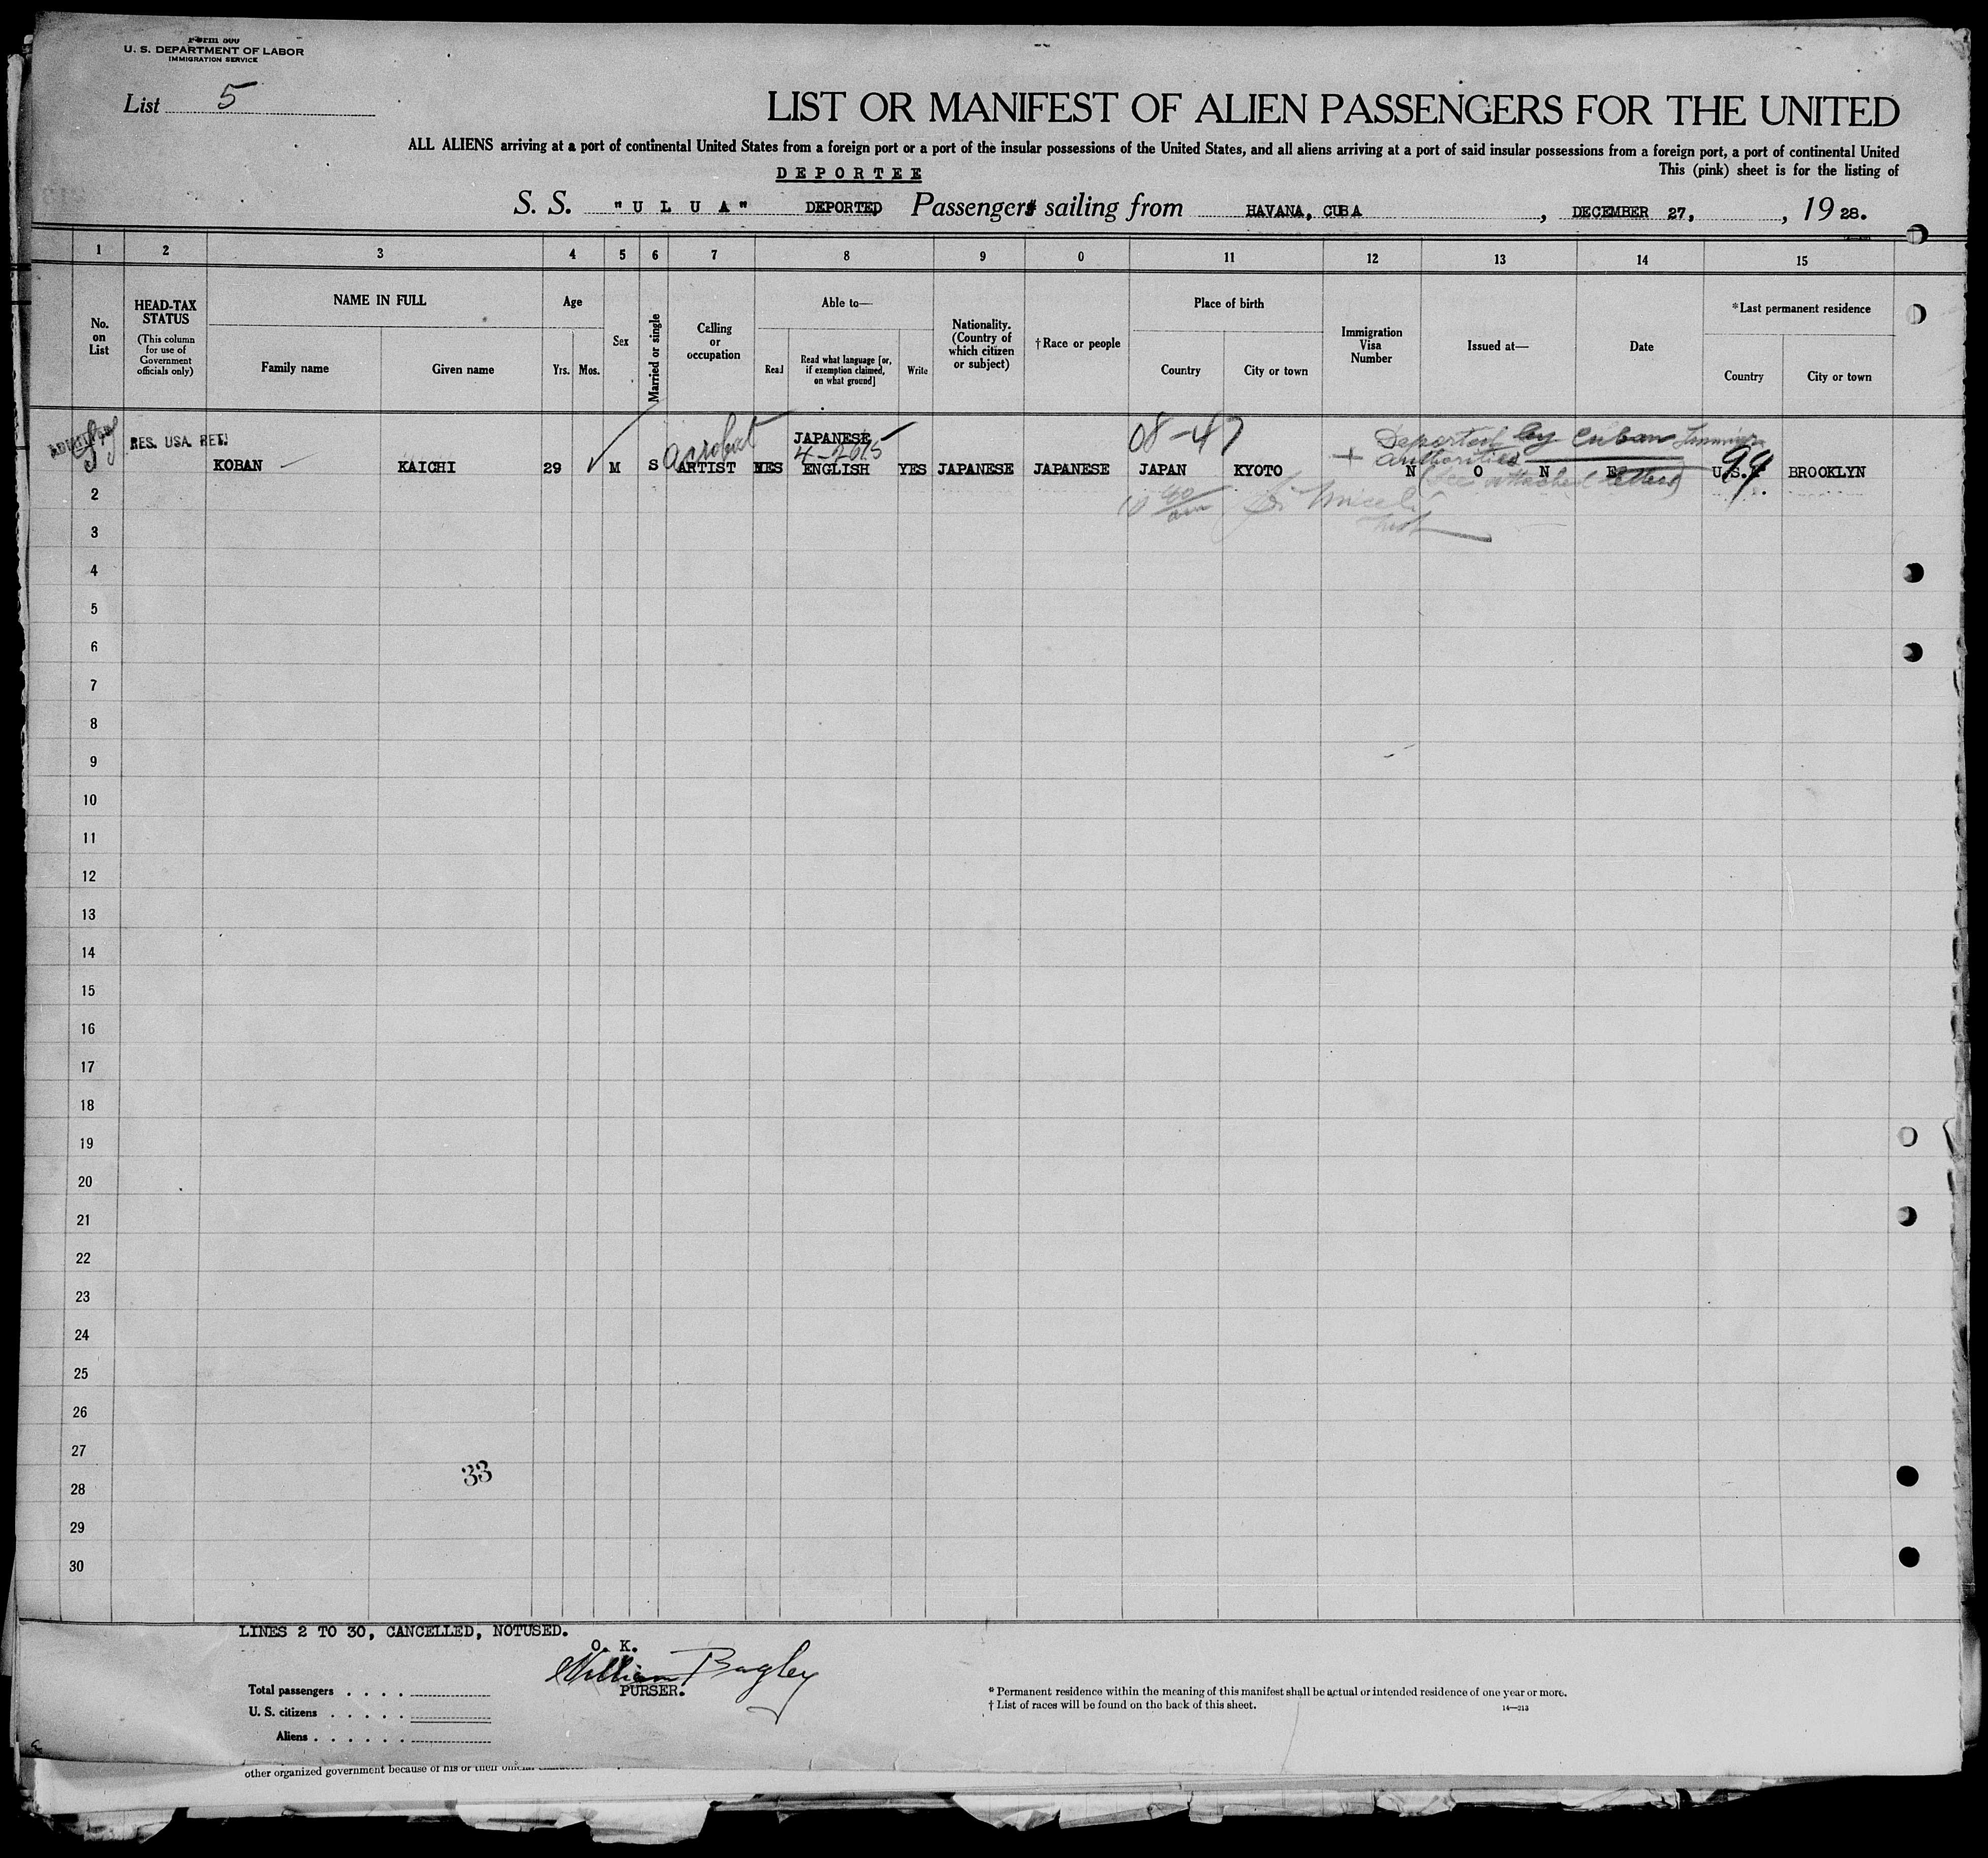 Form 500
U. S. DEPARTMENT OF LABOR
IMMIGRATION SERVICE
List 5
LIST OR MANIFEST OF ALIEN PASSENGERS FOR THE UNITED
ALL ALIENS arriving at a port of continental United States from a foreign port or a port of the insular possessions of the United States, and all aliens arriving at a port of said insular possessions from a foreign port, a port of continental United
DEPORTEE This (pink) sheet is for the listing of
S. S. "ULUA" DEPORTED Passenger sailing from HAVANA, CUBA, DECEMBER 27, , 19 28.
1 2 3 4 5 6 7 8 9 0 11 12 13 14 15
No. on List
HEAD-TAX STATUS
(This column for use of Government officials only)
NAME IN FULL
Family name
Given name
Age
Yrs. Mos.
Sex
Married or single
Calling or occupation
Able to—
Read
Read what language [or, if exemption claimed, on what ground]
Write
Nationality. (Country of which citizen or subject)
†Race or people
Place of birth
Country
City or town
Immigration Visa Number
Issued at—
Date
*Last permanent residence
Country
City or town
RES. USA. RET. acrobat JAPANESE 08-47 Deported by Cuban
4-2615 + authorities
KOBAN KAICHI 29 M S ARTIST YES ENGLISH YES JAPANESE JAPANESE JAPAN KYOTO NONE U.S. 99 BROOKLYN
(See attached letters)
2
3
4
5
6
7
8
9
10
11
12
13
14
15
16
17
18
19
20
21
22
23
24
25
26
27
33
28
29
30
LINES 2 TO 30, CANCELLED, NOTUSED.
O. K.
William Bagley
PURSER.
Total passengers . . . .
U. S. citizens . . . . .
Aliens . . . . . .
* Permanent residence within the meaning of this manifest shall be actual or intended residence of one year or more.
† List of races will be found on the back of this sheet.
14—213
other organized government because of his or their official